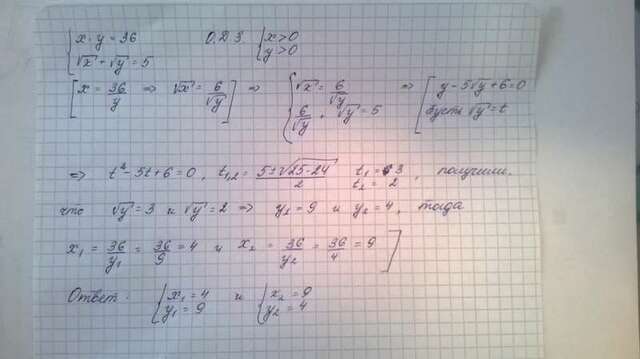 { x · y = 36   О.Д.З. { x > 0
√x + √y = 5   y > 0
[ x = 36/y ⇒ √x = 6/√y ] ⇒ { √x = 6/√y   ⇒ [ y - 5√y + 6 = 0
6/√y + √y = 5   пусть √y = t
⇒ t² - 5t + 6 = 0, t₁,₂ = (5 ± √(25 - 24))/2   t₁ = 3, t₂ = 2, получим,
что √y = 3 и √y = 2 ⇒ y₂ = 9 и y₂ = 4, тогда
x₁ = 36/y₁ = 36/9 = 4 и x₂ = 36/y₂ = 36/4 = 9 ]
Ответ: { x₁ = 4   и { x₂ = 9
y₁ = 9   y₂ = 4